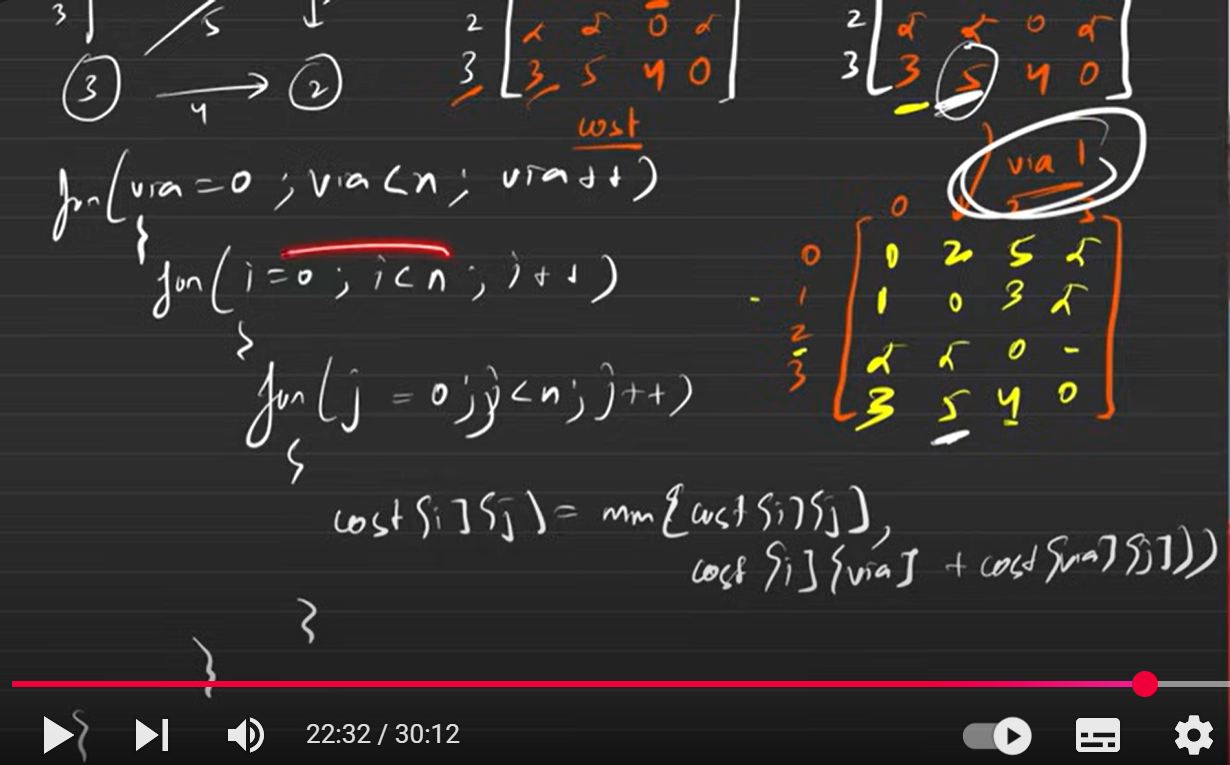 3 5
3 4 2
2 ∞ ∞ 0 ∞
3 3 5 4 0
cost
2 ∞ ∞ 0 ∞
3 3 5 4 0
via 1
for(via=0 ; via<n ; via++)
{
for( i=0 ; i<n ; i++)
{
for( j = 0 ; j<n ; j++)
{
cost[i][j] = min(cost[i][j],
cost[i][via] + cost[via][j]))
}
}
}
0 3
0 0 2 5 ∞
1 1 0 3 ∞
2 ∞ ∞ 0 -
3 3 5 4 0
22:32 / 30:12